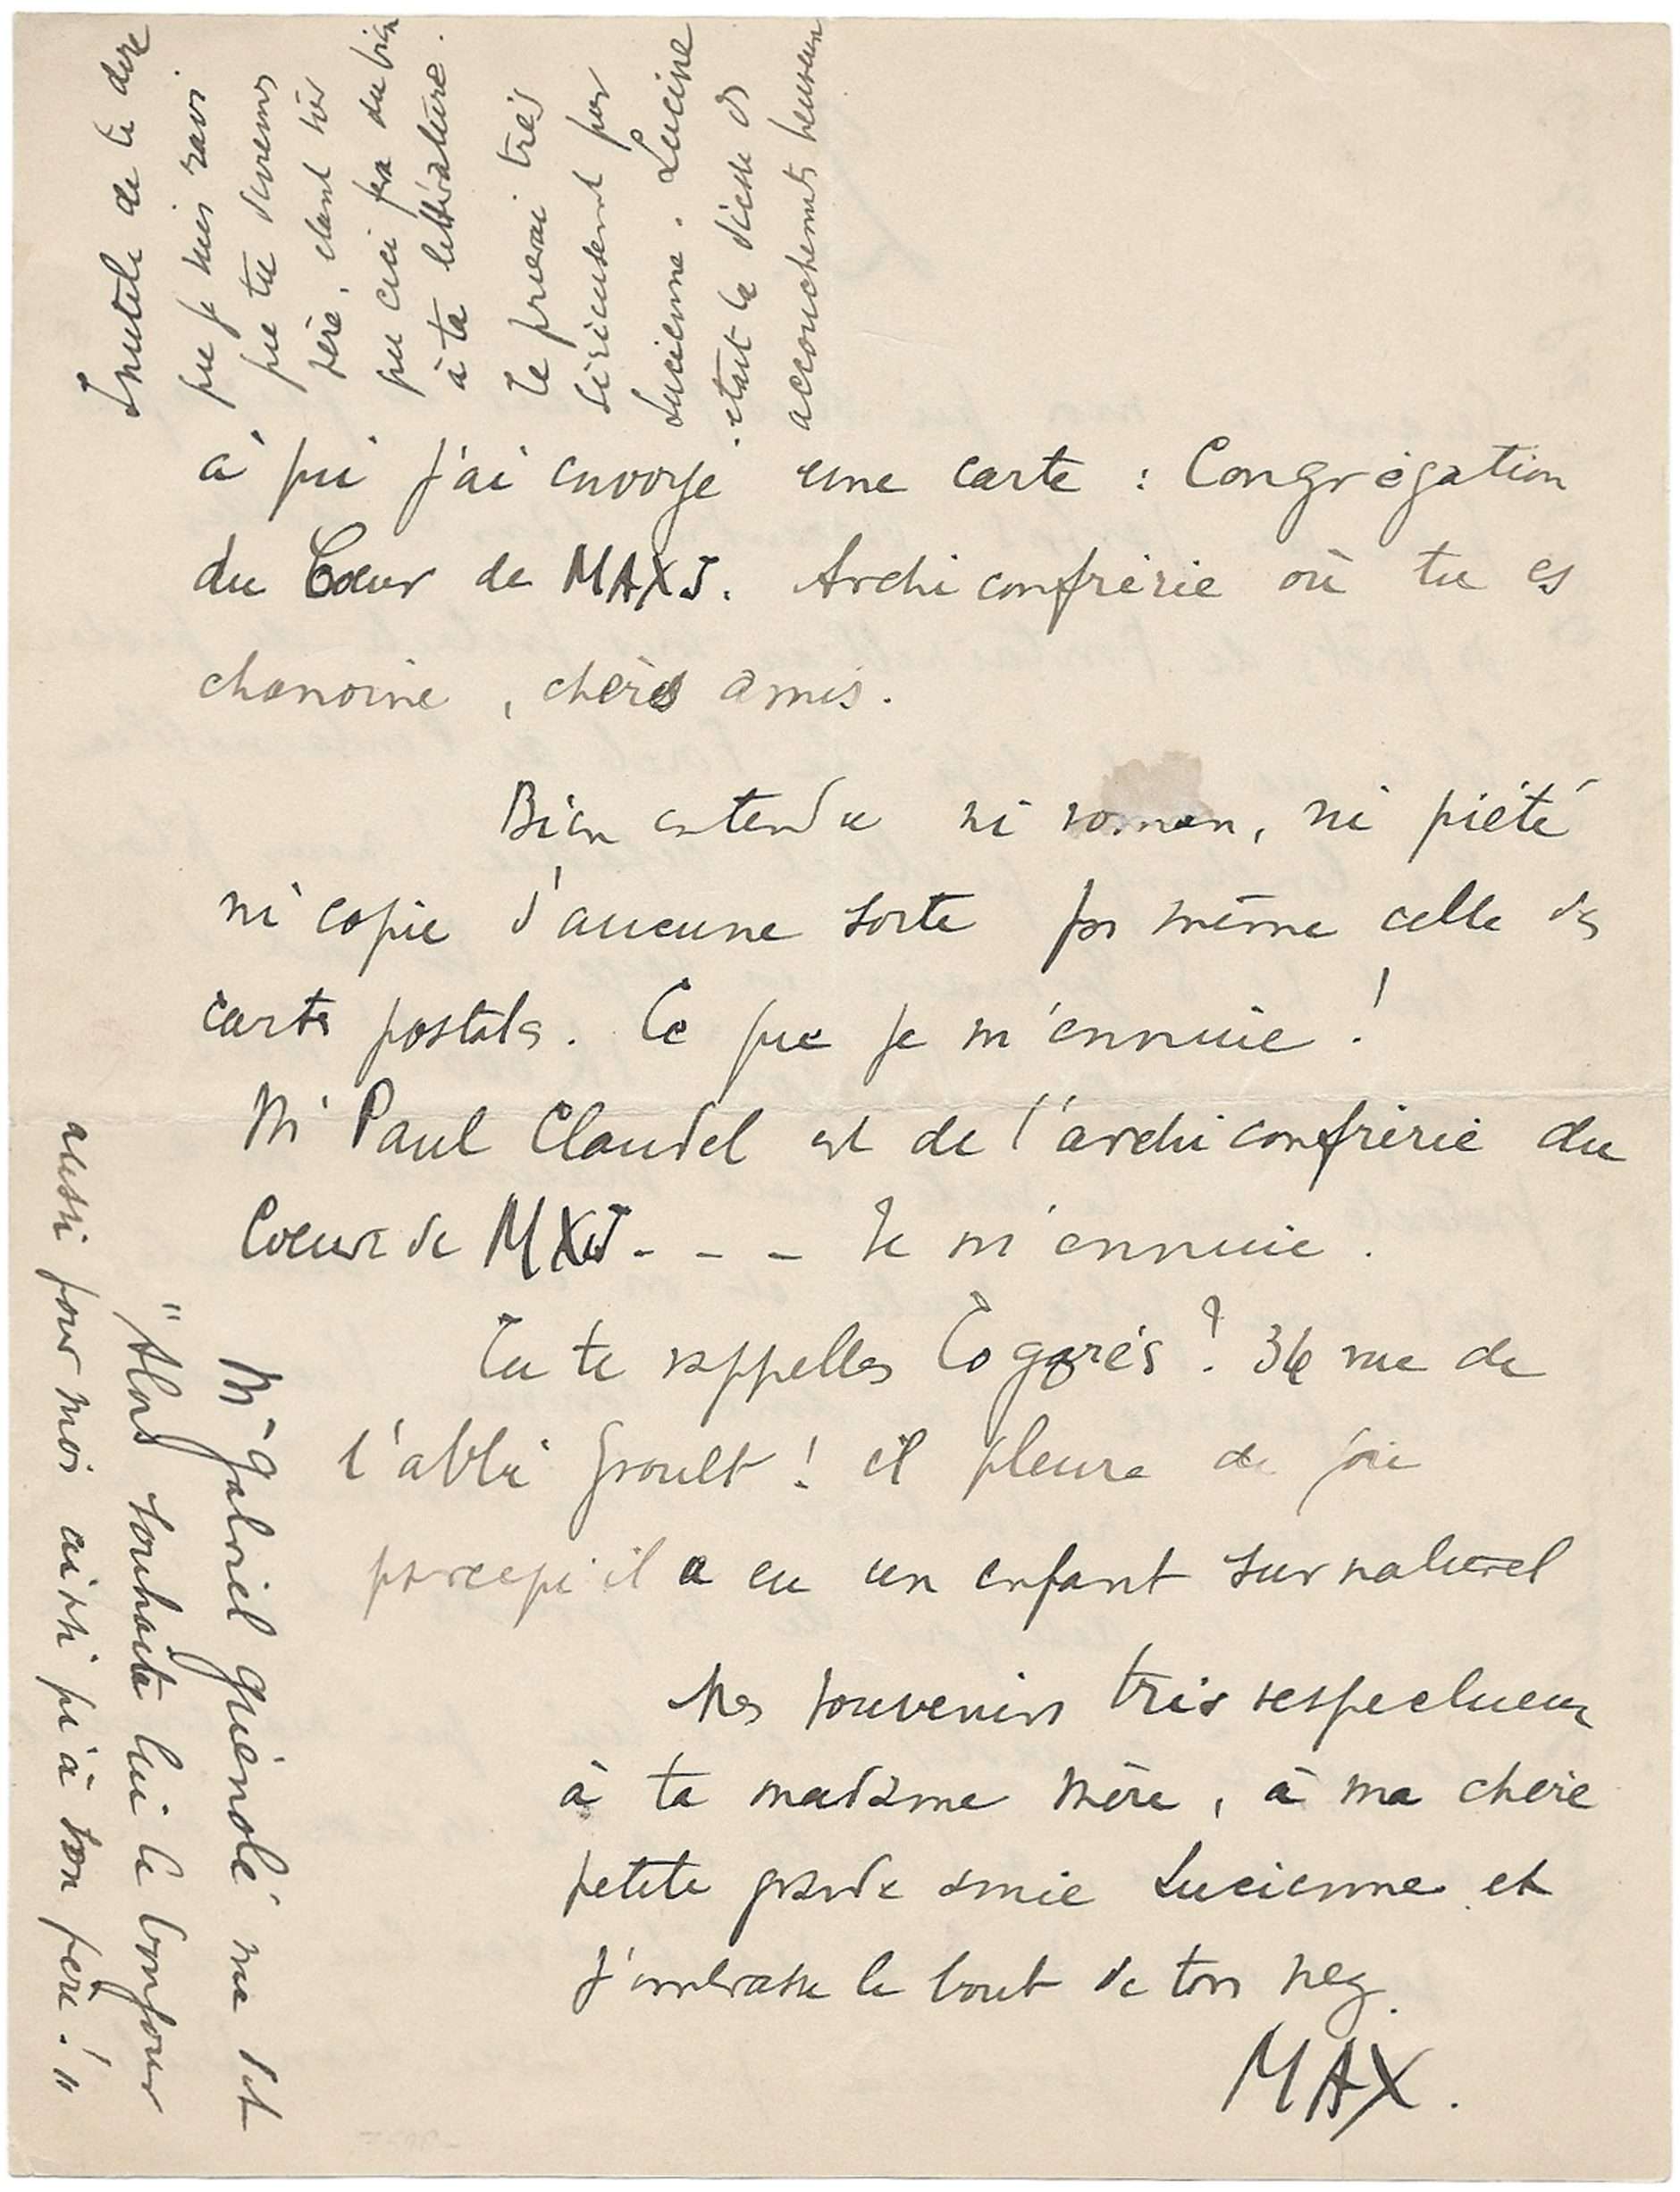 à qui j'ai envoyé une carte : Congrégation
du Cœur de MAXJ. Archiconfrérie où tu es
chanoine, chers amis.
Bien entendu ni roman, ni piété
ni copie d'aucune sorte pas même celle des
cartes postales. Ce que je m'ennuie !
Mr Paul Claudel est de l'archiconfrérie du
Coeur de MXJ - - - Je m'ennuie.
Tu te rappelles Togorès ? 36 rue de
l'abbé Groult ! il pleure de joie
parcequ'il a eu un enfant surnaturel
Mes souvenirs très respectueux
à ta madame mère, à ma chère
petite grande amie Lucienne et
j'embrasse le bout de ton nez.
MAX.
Inutile de te dire
que je suis ravi
que tu deviennes
père, étant sûr
que ceci fera du bien
à ta littérature.
Je prierai très
sérieusement pour
Lucienne. Lucine
était la déesse des
accouchements heureux
Mr Gabriel Guénolé me dit
"Alors souhaite lui le bonjour
aussi pour moi ainsi qu'à son père!"